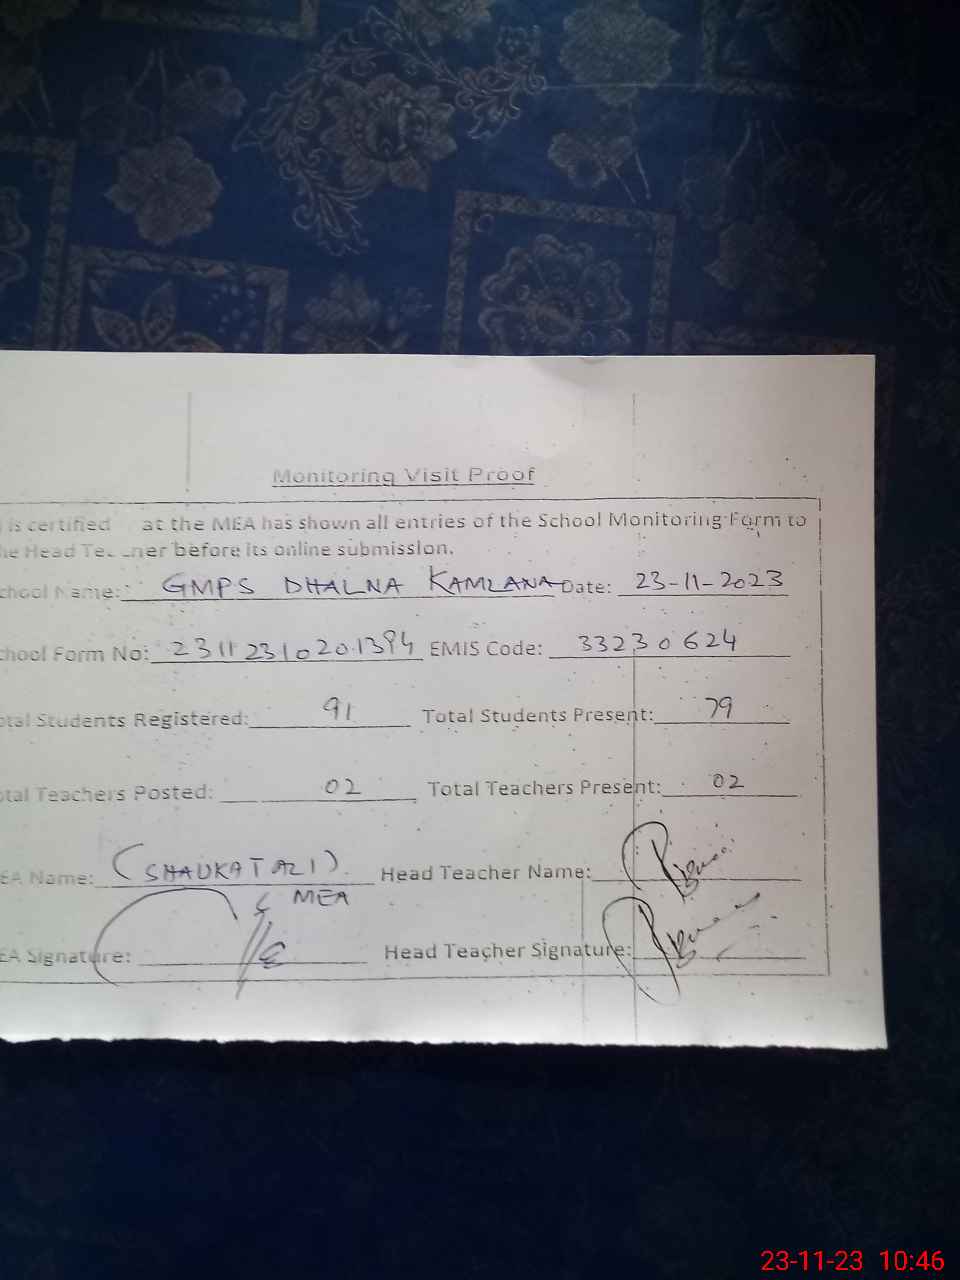 Monitoring Visit Proof
is certified at the MEA has shown all entries of the School Monitoring Form to
he Head Teacher before its online submission.
chool Name: GMPS DHALNA KAMLANA Date: 23-11-2023
chool Form No: 2311231020.1394 EMIS Code: 33230624
otal Students Registered: 91 Total Students Present: 79
otal Teachers Posted: 02 Total Teachers Present: 02
EA Name: (SHAUKAT AZI) Head Teacher Name:
MEA
EA Signature: Head Teacher Signature:
23-11-23 10:46